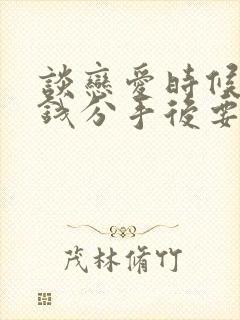 談戀愛時候
錢分手後要
茂林脩竹